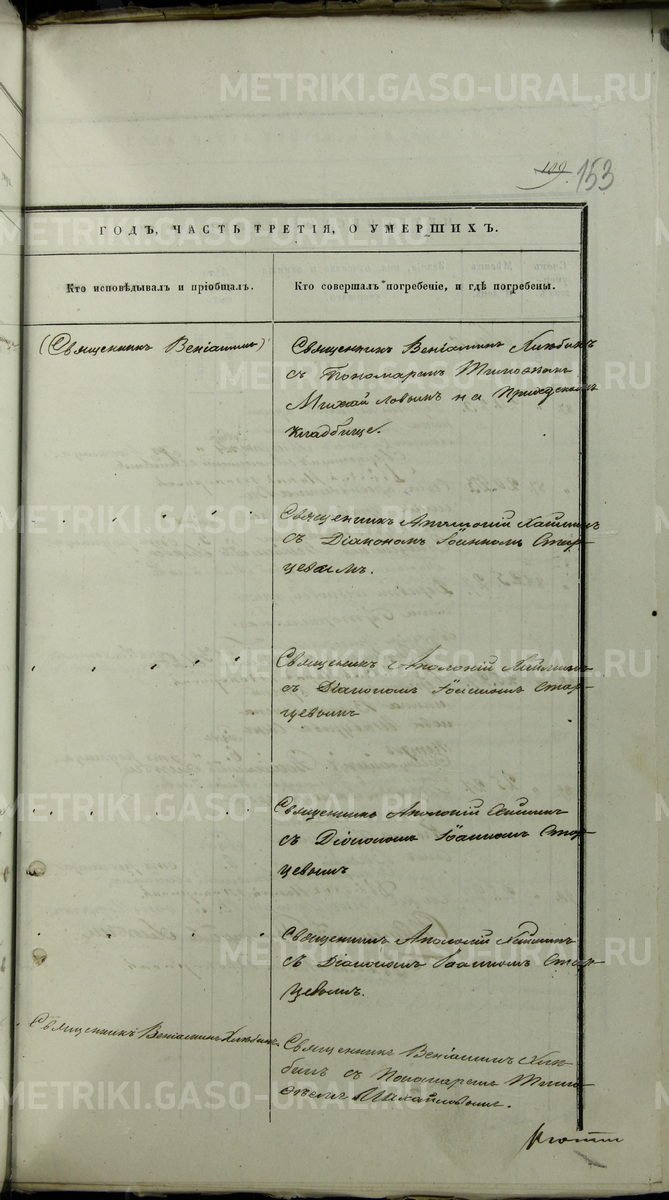 METRIKI.GASO-URAL.RU
109. 153
ГОДЪ, ЧАСТЬ ТРЕТІЯ, О УМЕРШИХЪ.
Кто исповѣдывалъ и пріобщалъ.
Кто совершалъ погребеніе, и гдѣ погребены.
(Священникъ Веніаминъ)
Священникъ Веніаминъ
съ Пономаремъ Тимоѳеемъ
Михайловымъ на Приходскомъ
кладбище.
Священникъ Аполоній
съ Діакономъ Іоанномъ Стар-
цевымъ.
Священникъ Аполоній
съ Діакономъ Іоанномъ Стар-
цевымъ
Священникъ Аполоній
съ Діакономъ Іоанномъ Стар-
цевымъ
Священникъ Аполоній
съ Діакономъ Іоанномъ Стар-
цевымъ.
Священникъ Веніаминъ
Священникъ Веніаминъ
съ Пономаремъ Тимо-
ѳеемъ Михайловымъ.